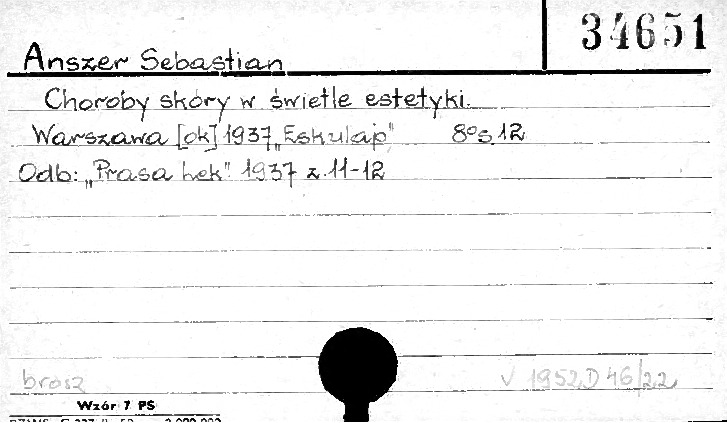 34651
Anszer Sebastian
Choroby skóry w świetle estetyki.
Warszawa [ok] 1937 „Eskulap" 8° s. 12
Odb: „Prasa Lek". 1937 z. 11-12
brosz V 1952 D 46/22
Wzór 7 PS